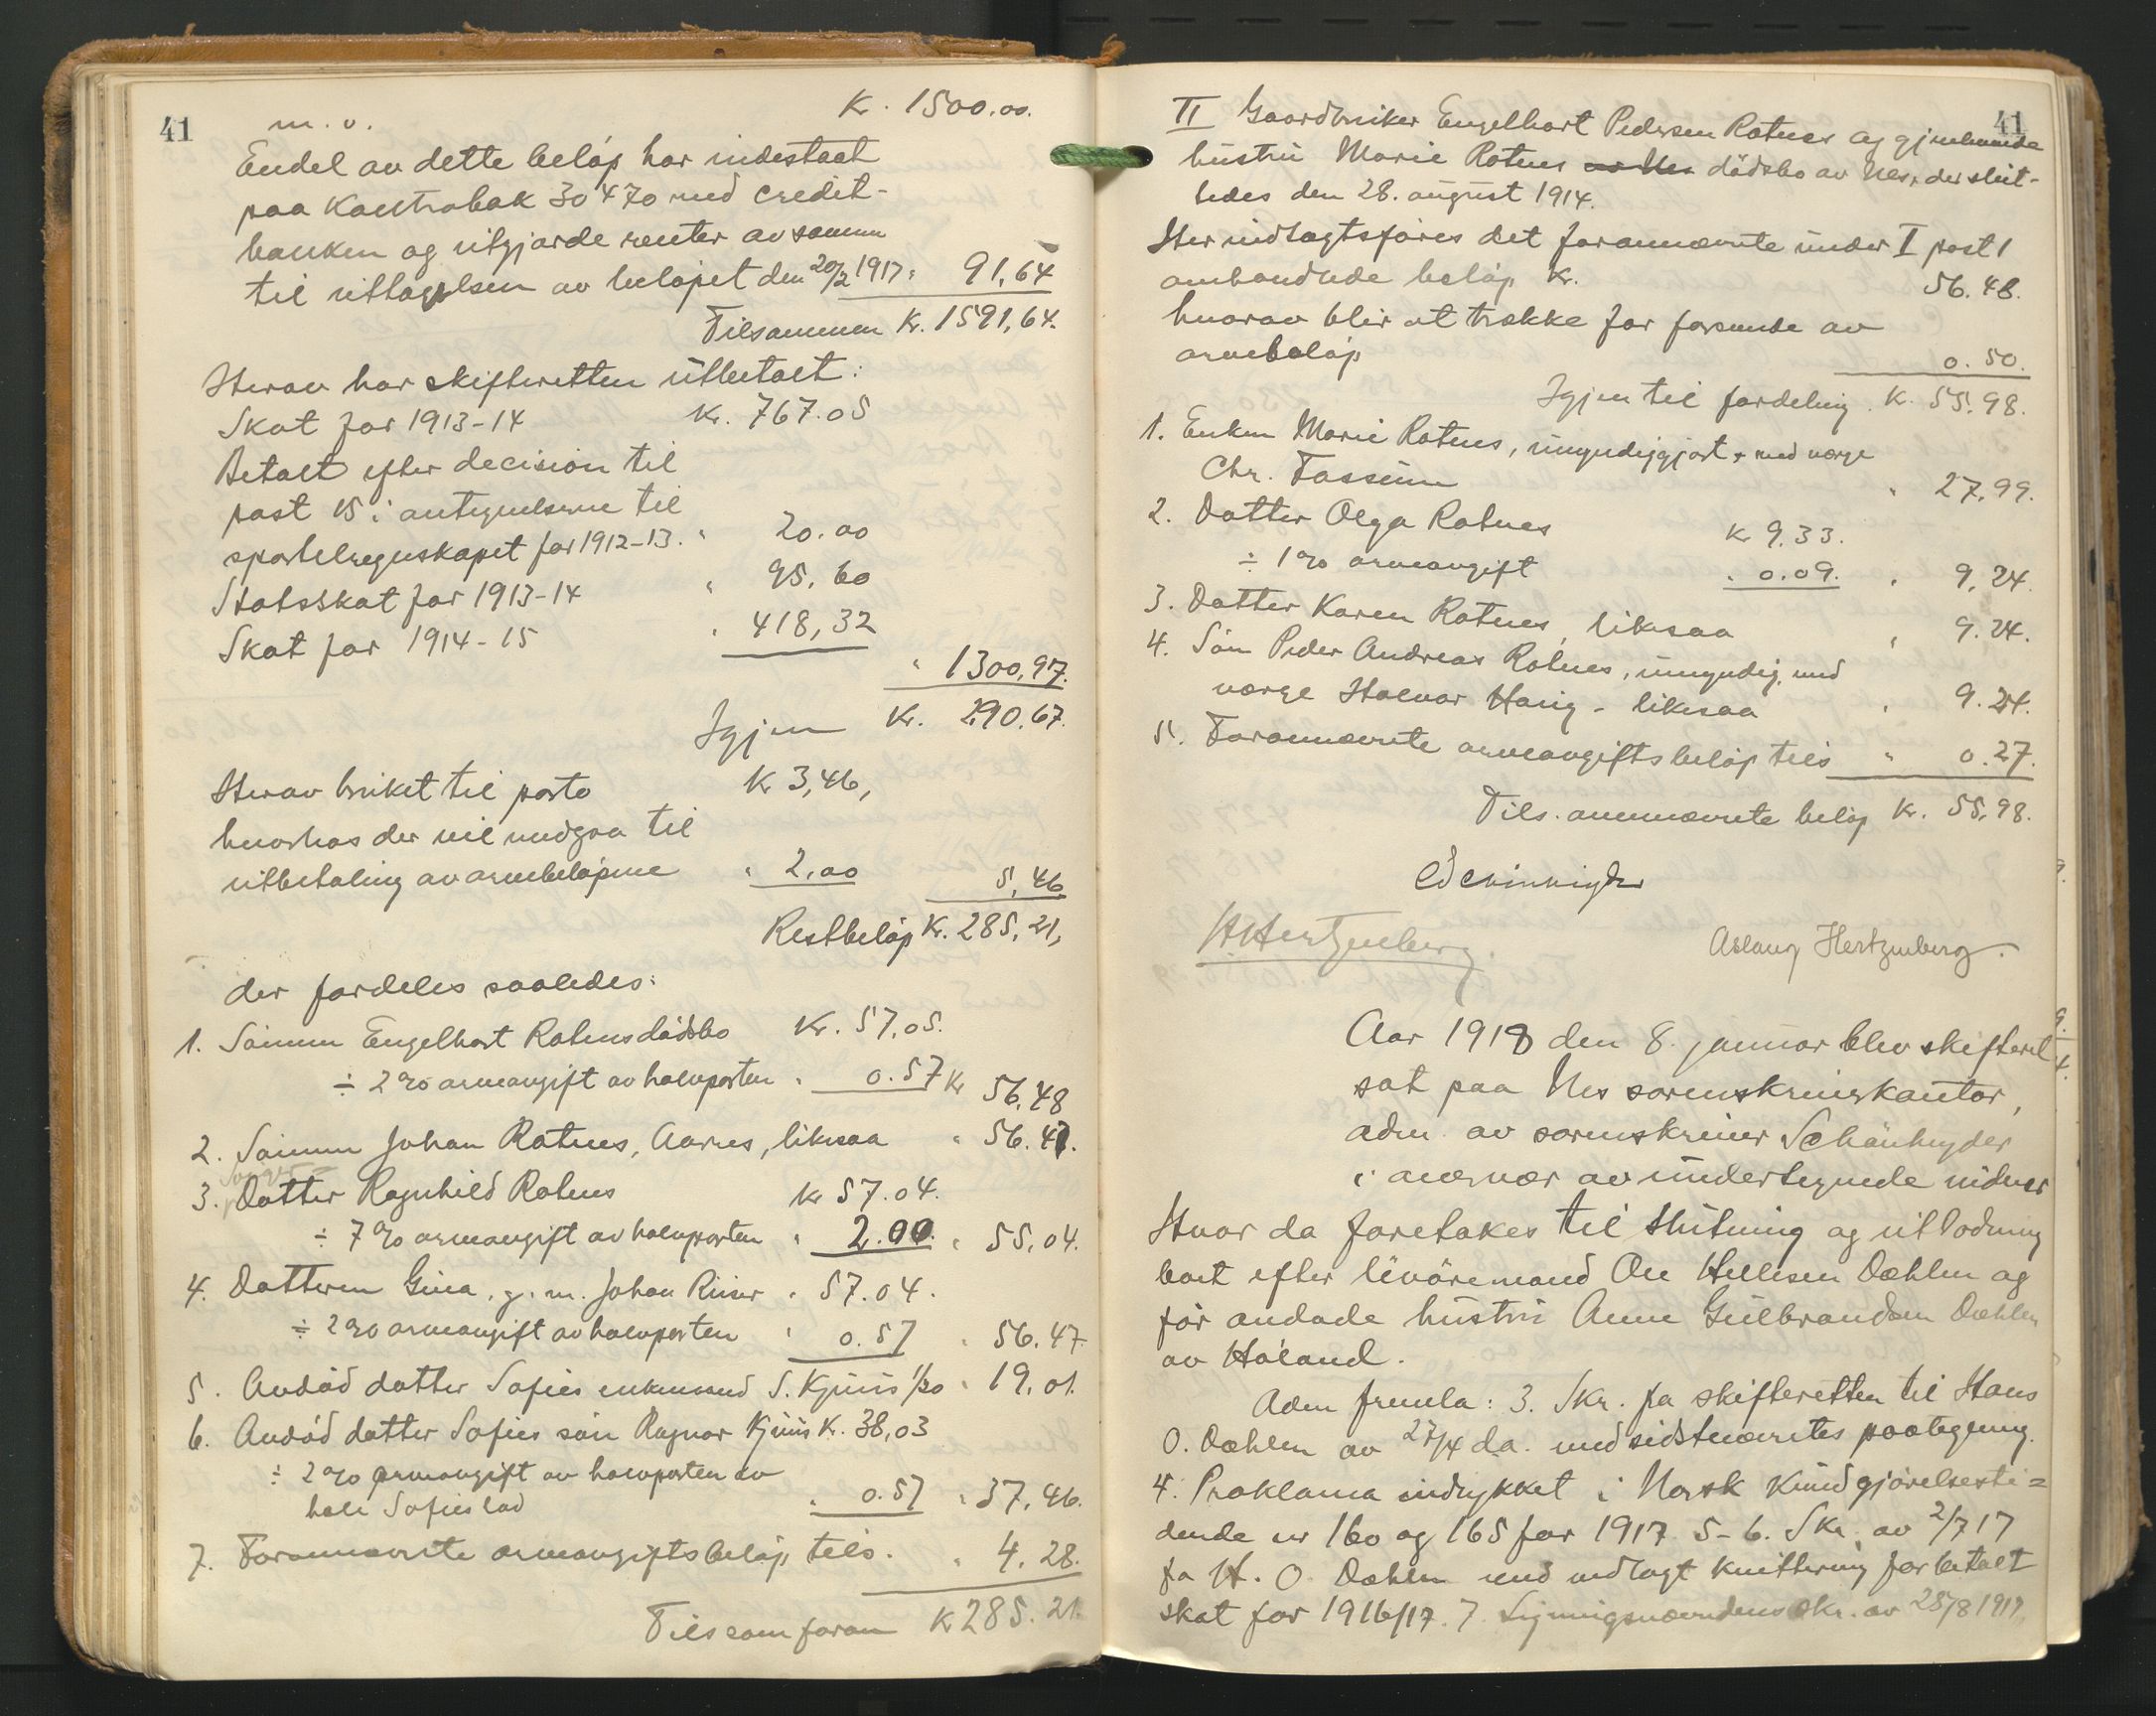 41
m. v. Kr. 1500.00.
Endel av dette beløp har indestaat
paa Kontrabok 30470 med Credit-
banken og utgjorde renter av samme
til uttagelsen av beløpet den 20/2 1917: 91,64
Tilsammen Kr. 1591,64.
Herav har skifteretten utbetalt:
Skat for 1913-14 Kr. 767.05
Betalt efter decision til
post 15 i antegnelserne til
sportelregnskapet for 1912-13. " 20.00
Statsskat for 1913-14 " 95.60
Skat for 1914-15 " 418,32
" 1300,97.
Igjen Kr. 290.67.
Herav bruket til porto K 3,46,
hvorhos der vil medgaa til
utbetaling av arvebeløpene " 2,00 5,46
Restbeløp Kr. 285,21,
der fordeles saaledes:
1. Sønnen Engelhart Rotnes dødsbo Kr. 57,05.
÷ 2% arveavgift av halvparten " 0.57 Kr 56,48
2. Sønnen Johan Rotnes, Aarnes, likesaa " 56.47.
3. Datter Ragnhild Rotnes Kr 57.04.
÷ 7% arveavgift av halvparten " 2.00. " 55,04.
4. Datteren Gina, g. m. Johan Riiser " 57.04.
÷ 2% arveavgift av halvparten " 0.57 " 56.47
5. Avdød datter Sofies enkemand S. Kjuus " 19.01.
6. Avdød datter Sofies søn Ragnar Kjuus K. 38,03
÷ 2% arveavgift av halvparten av
hele Sofies lod " 0.57 " 37,46.
7. Forannævnte arveavgiftsbeløp tils. " 4,28.
Tils som foran K 285.21.
41
II Gaardbruker Engelhart Pedersen Rotnes og gjenlevende
hustru Marie Rotnes av Nes dødsbo av Nes, der slut-
tedes den 28. august 1914.
Her indtagtsføres det forannævnte under I post 1
omhandlede beløp Kr. 56.48.
hvorav blir at trække for forsende av
arvebeløp 0.50.
Igjen til fordeling K. 55,98.
1. Enken Marie Rotnes, umyndiggjort, med værge
Chr. Fossum " 27,99.
2. Datter Olga Rotnes K 9,33.
÷ 1% arveavgift " 0.09. " 9,24.
3. Datter Karen Rotnes, likesaa " 9.24.
4. Søn Peder Andreas Rotnes, umyndig, med
værge Halvor Haug - likesaa " 9.24.
5. Forannævnte arveavgiftsbeløp tils " 0.27.
Tils. ovennævnte beløp Kr. 55,98.
H Hertzenberg. Aslaug Hertzenberg.
Aar 1918 den 8. januar blev skifteret
sat paa Nes sorenskriverkontor,
adm. av sorenskriver Schønheyder
i overvær av undertegnede vidner
Hvor da foretokes til slutning og utlodning
boet efter livøremand Ole Hellesen Dæhlen og
før avdøde hustru Anne Gulbrandsen Dæhlen
av Høland.
Adm fremla: 3. Skr. fra skifteretten til Hans
O. Dæhlen av 27/4 d.a. med sidstnævntes paategning.
4. Proklama indrykket i Norsk Kundgjørelsesti=
dende nr 160 og 165 for 1917 5-6. Skr. av 2/7 17
fra H. O. Dæhlen med vedlagt kvittering for betalt
skat for 1916/17. 7. Ligningsnævndens skr. av 28/8 1917,